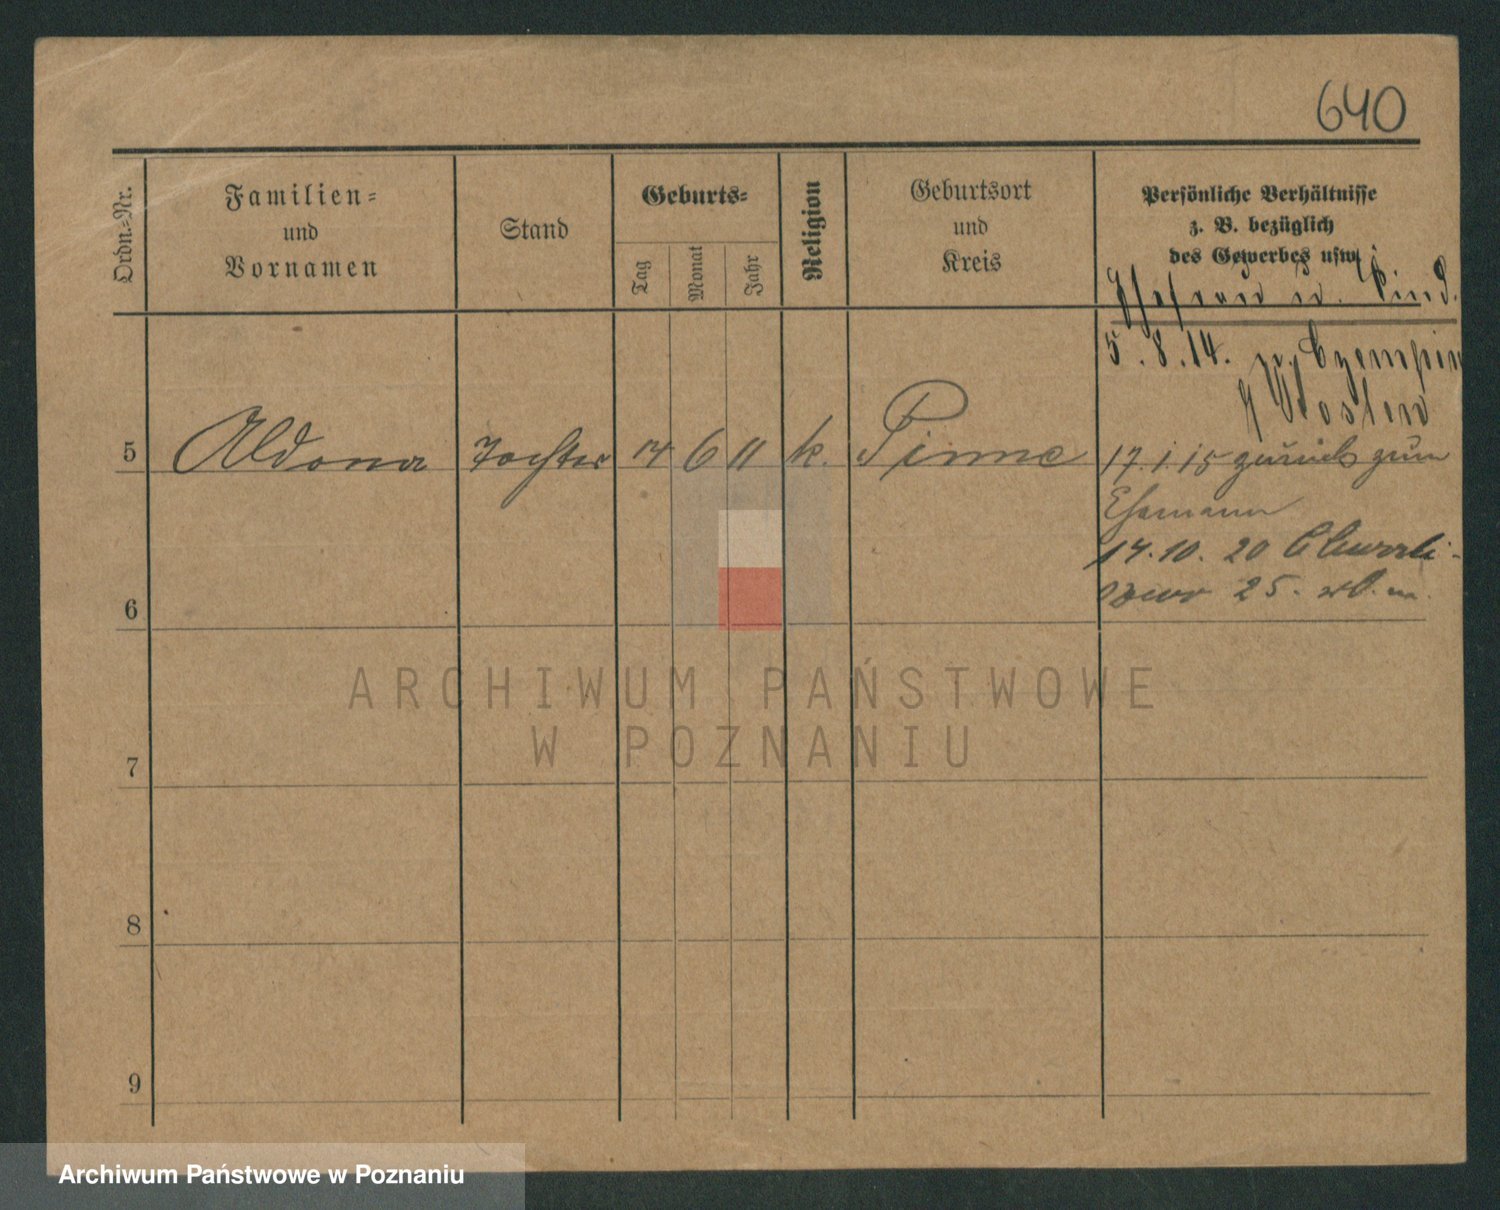 640
Ordn.-Nr.
Familien-
und
Vornamen
Stand
Geburts-
Tag
Monat
Jahr
Religion
Geburtsort
und
Kreis
Persönliche Verhältnisse
z. B. bezüglich
des Gewerbes usw.
Ehefrau u. Kind.
5.8.14. n. Czempin
Kosten
5 Aldona Tochter 14 6 11 k. Pinne 17.1.15 zurück zum
Ehemann
14.10.20
25.
6
7
8
9
ARCHIWUM PAŃSTWOWE
W POZNANIU
Archiwum Państwowe w Poznaniu